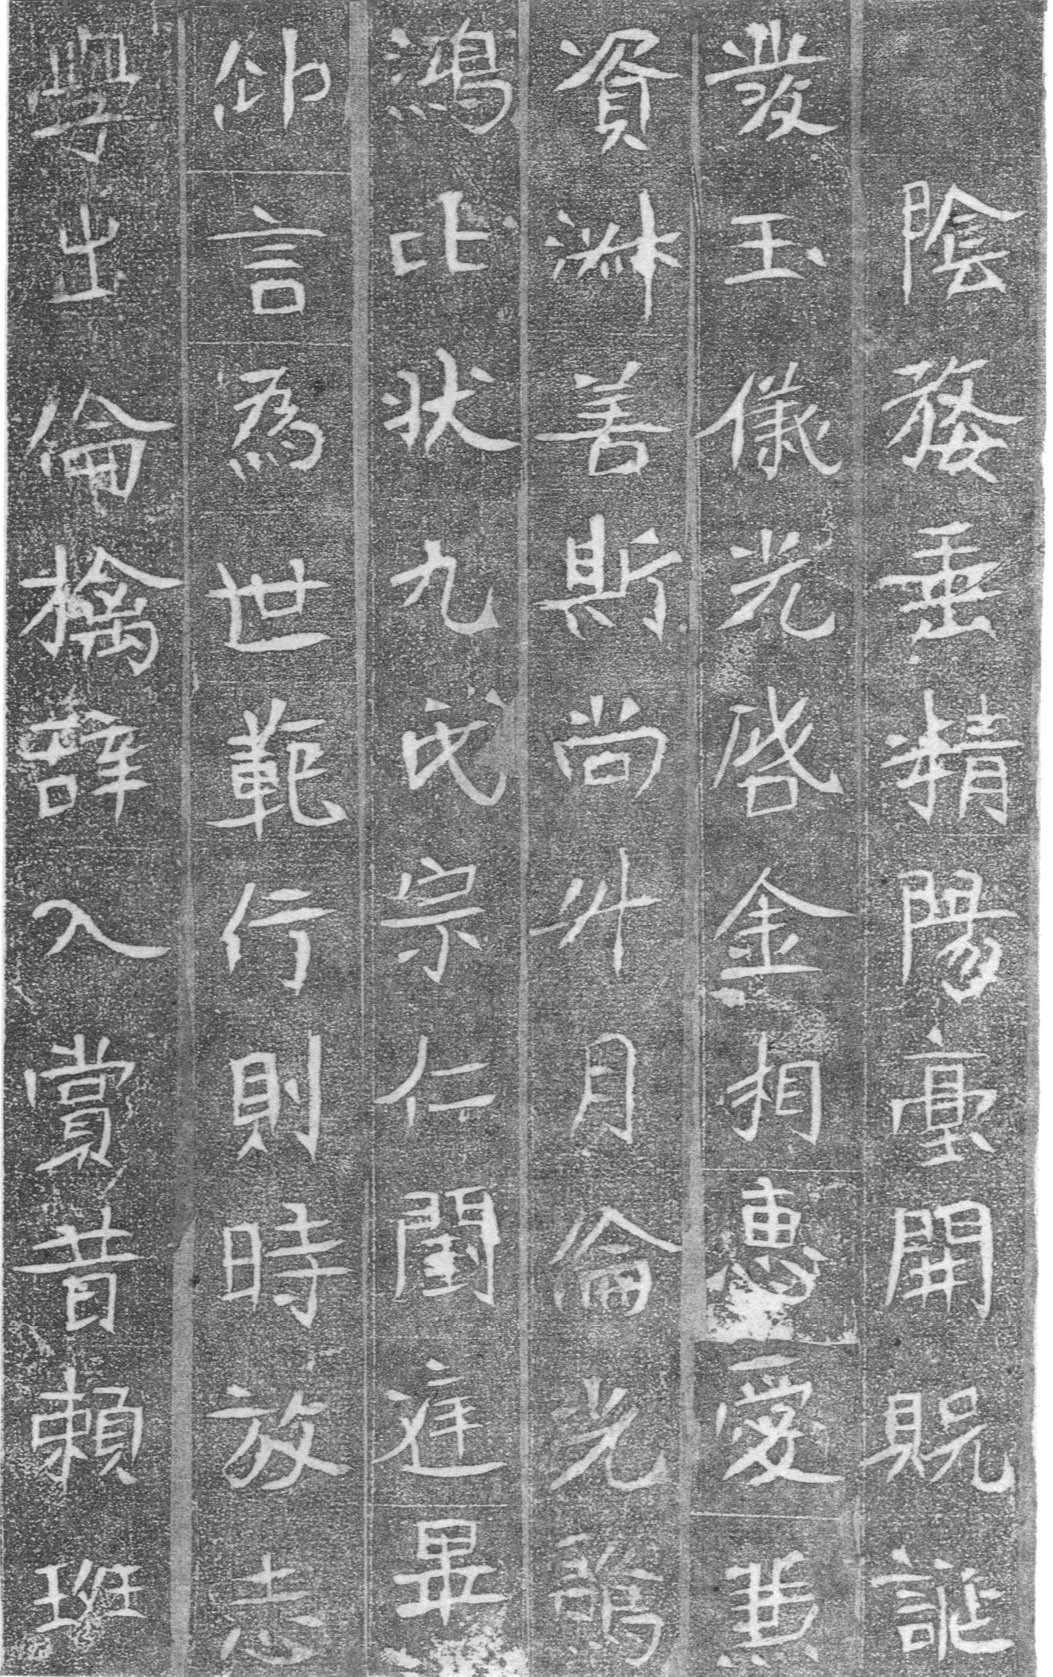 陰婺垂精陽臺開貺誕
發玉儀光啓金相惠愛兼
資淑善斯尚升月淪光驚
鴻止狀九氏宗仁閨庭畢
仰言爲世範行則時放志
學出倫摛辭入賞昔賴班